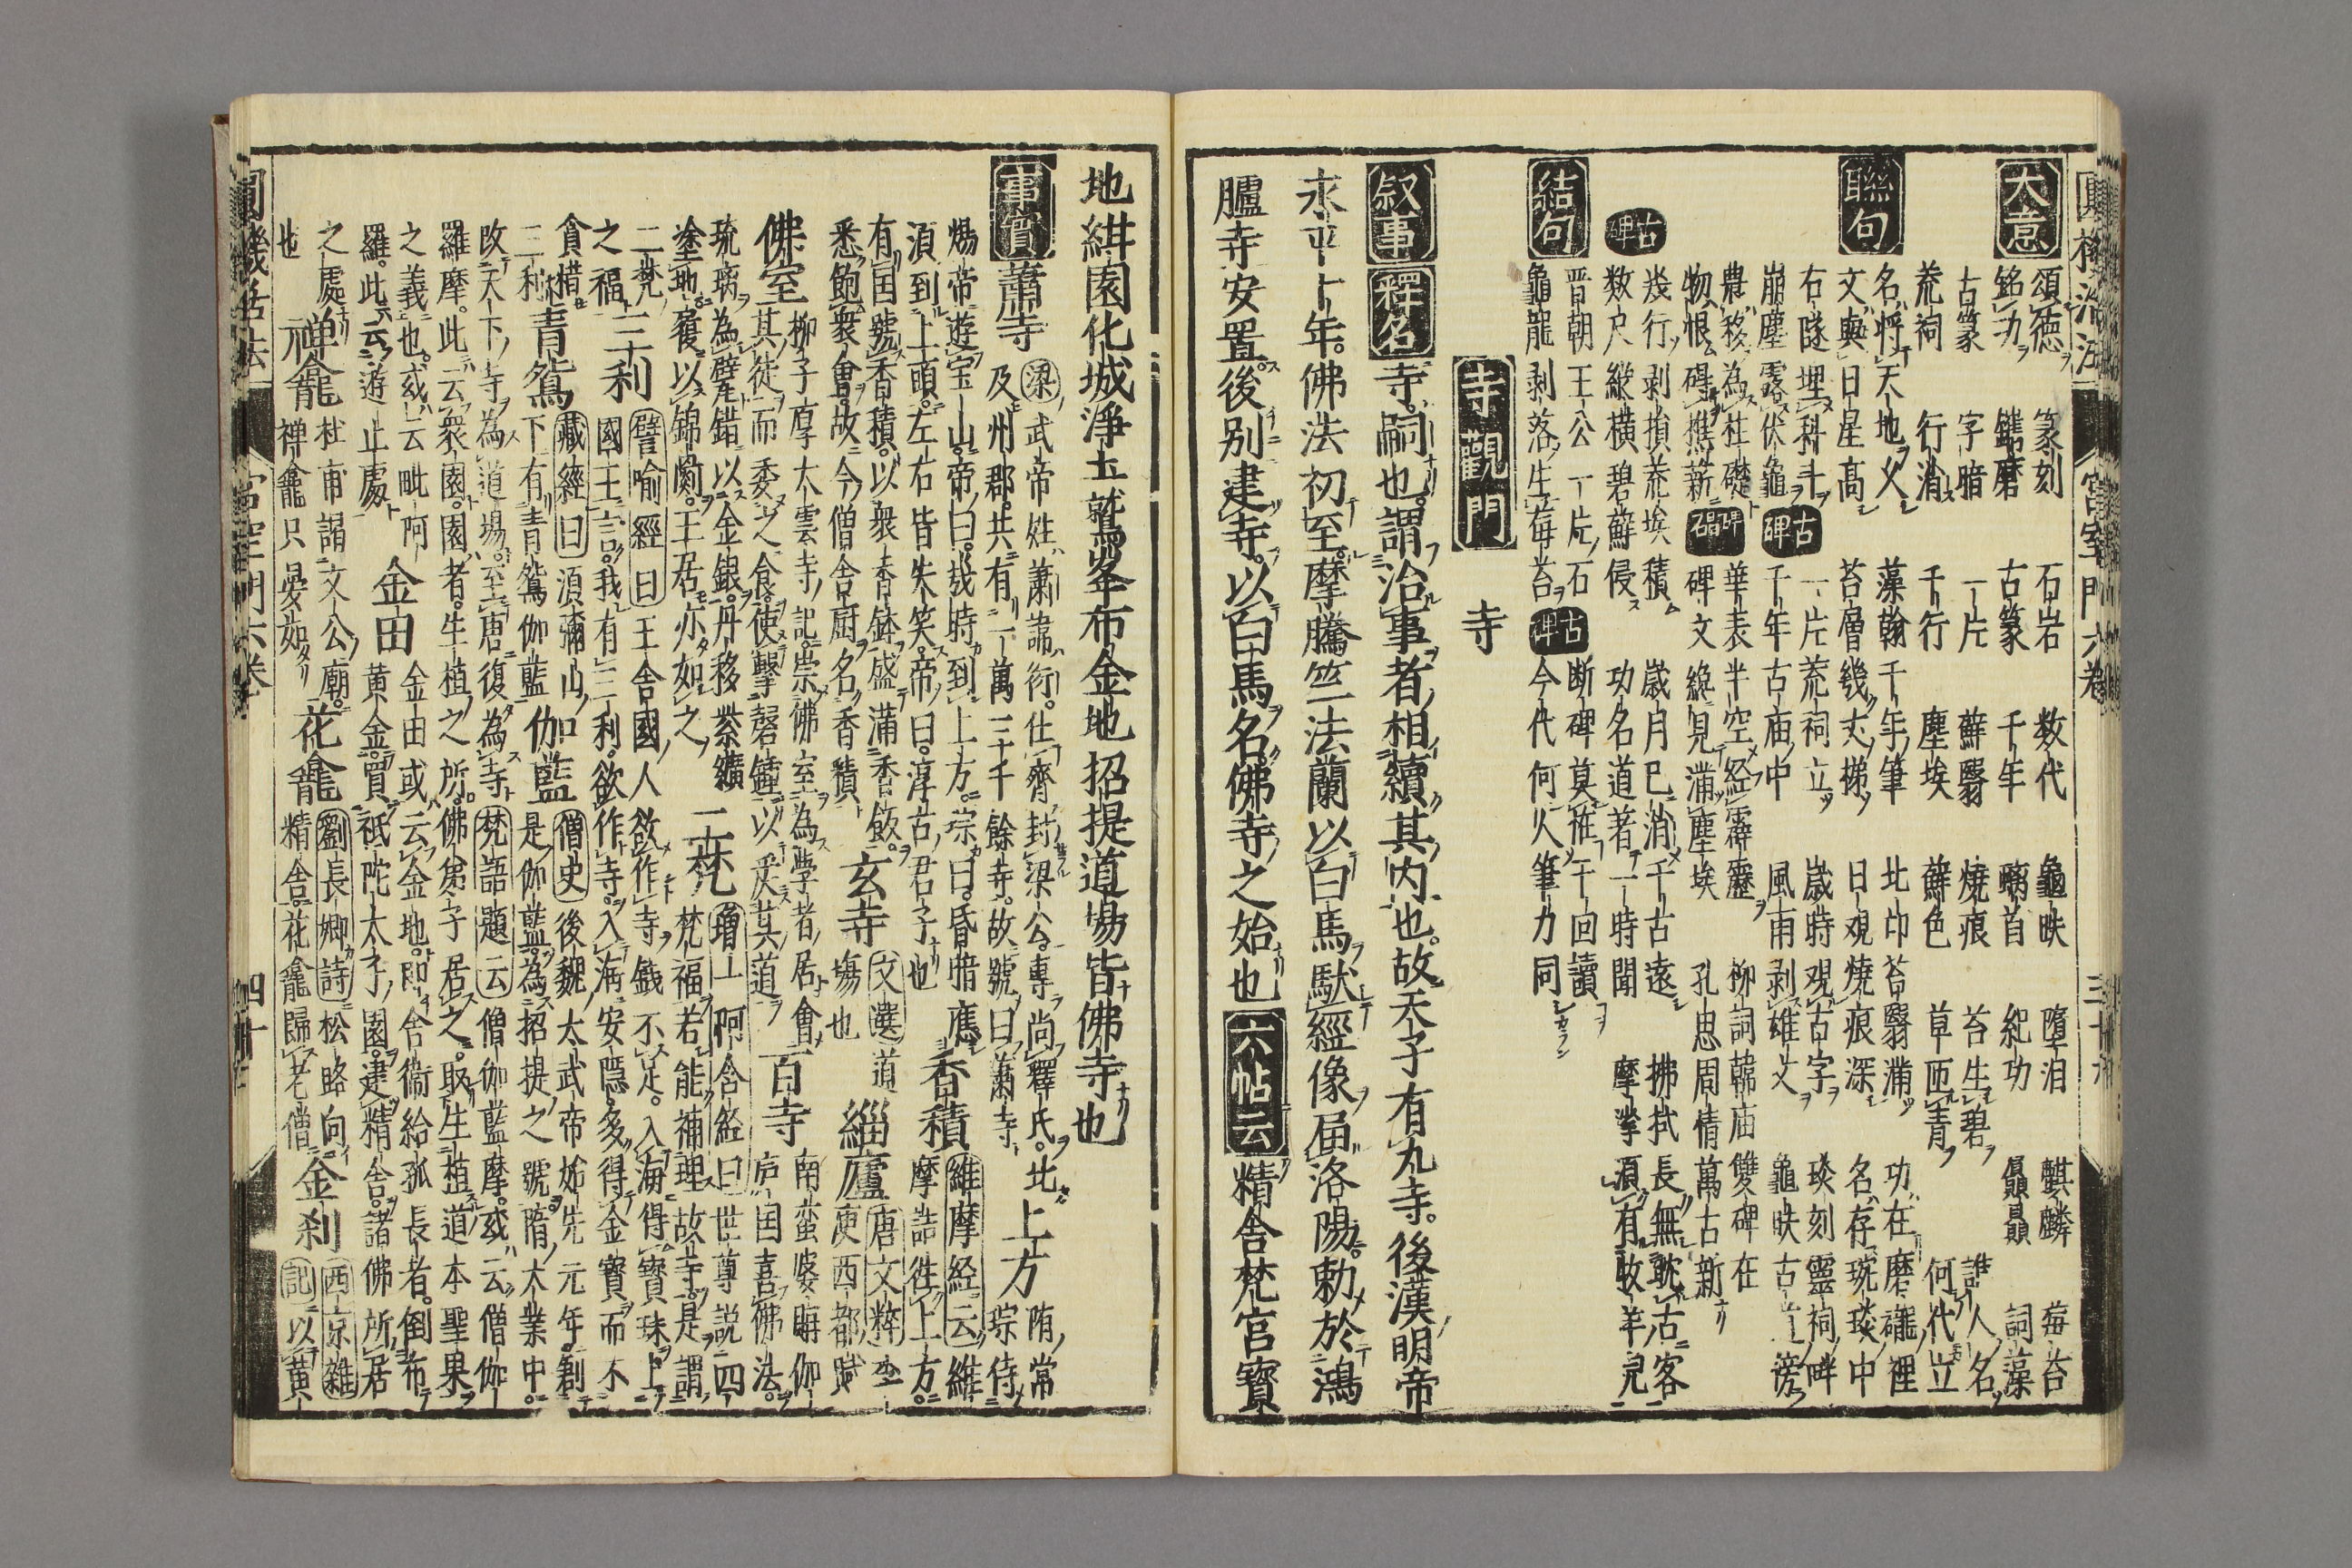 圓機活法 宮室門六卷 三十九
大意
頌德 篆刻 石岩 数代 龜趺 墮泪 麒麟 莓苔
銘功 鐫磨 古篆 千年 螭首 紀功 贔屭 詞藻
古篆 字暗 一片 蘚翳 燒痕 苔生碧 誰人名
荒祠 行消 千行 塵埃 蘚色 草匝青 何代立
聯句
名將天地久 藻翰千年筆 北邙苔翳滿 功在磨礲裡
文與日星高 苔層幾丈梯 日観燒痕深 名存琬琰中
右隧埋科斗 一片荒祠立 歳時観古字 琰刻靈祠畔
崩塵露伏龜 古碑 千年古庙中 風雨剥雄文 龜趺古道滂
農移為柱礎 華表半空經霹靂 柳詞韓庙雙碑在
物恨碍樵薪 碑碣 碑文纔見滿塵埃 孔思周情萬古新
古碑
幾行剥損荒埃積 歲月已消千古遠 拂拭長無耽古客
数尺縱橫碧蘚侵 功名道著一時聞 摩挲湏有牧羊兒
結句
晋朝王公一片石 断碑莫惟千回讀
龜龍剥落生莓苔 古碑 今代何人筆力同
寺觀門 寺
叙事 釋名 寺嗣也。謂治事者相續其内也。故天子有九寺。後漢明帝
永平十年。佛法初至。摩騰竺法蘭以白馬馱經像届洛陽。勅於鴻
臚寺安置。後別建寺。以白馬名。佛寺之始也 六帖云 精舍梵宮寶
地紺園化城淨土鷲峯布金地招提道場皆佛寺也
事實 蕭寺 梁武帝姓蕭諱衍。仕齊封梁公。專尚釋氏。此
及州郡。共有二萬三千餘寺。故號曰蕭寺 上方 隋常
煬帝遊宝山。帝曰。幾時到上方。琮曰。昏暗應
湏到上頭。左右皆失笑。帝曰。淳古君子也 香積 維摩経云 維
摩詰徃上方。
有国號香積。以衆香鉢盛滿香飯。
悉飽衆會。故今僧舍厨名香積 玄寺 文選 道場也 緇廬 唐文粹
庾西都賦
佛室 柳子厚太雲寺記。崇佛室為学者居會
其徒而委之食。使擊磬鐘以 其道 百寺 南蛮婆
国喜佛法。
琉璃為甓。錯以金銀。丹移紫鑛
塗地。覆以錦罽。王居亦如之 二梵 増一阿含経曰 世尊説四
梵福。若能補理故寺。是謂
二梵之福 三利 譬喻經曰 王舍國人欲作寺。銭不足。入海得寶珠。上
國王言。我有三利。欲作寺。入海安隱。多得金寶。而不
貪惜。三利 青鴛 藏經曰 湏彌山
下有青鴛伽藍 伽藍 僧史 後魏太武帝 元年。創
是伽藍。為招提之號。隋大業中。
改天下寺為道場。至唐復為寺 梵語題云 僧伽藍摩。或云僧伽
羅摩。此云衆園。園者。生植之所。佛弟子居之。取生植道本聖果
之義也。或云毗阿
羅。此云遊止處 金田 金田或云金地。即舍衛給孤長者。倒布
黄金。買祇陀太子園。建精舍。諸佛所居
之處 禅龕 杜甫謁文公廟。
禅龕只晏如 花龕 劉長卿詩 松路向
精舎。花龕歸老僧 金刹 西京雜記 以黄
也
圓機活法 宮室門六卷 四十